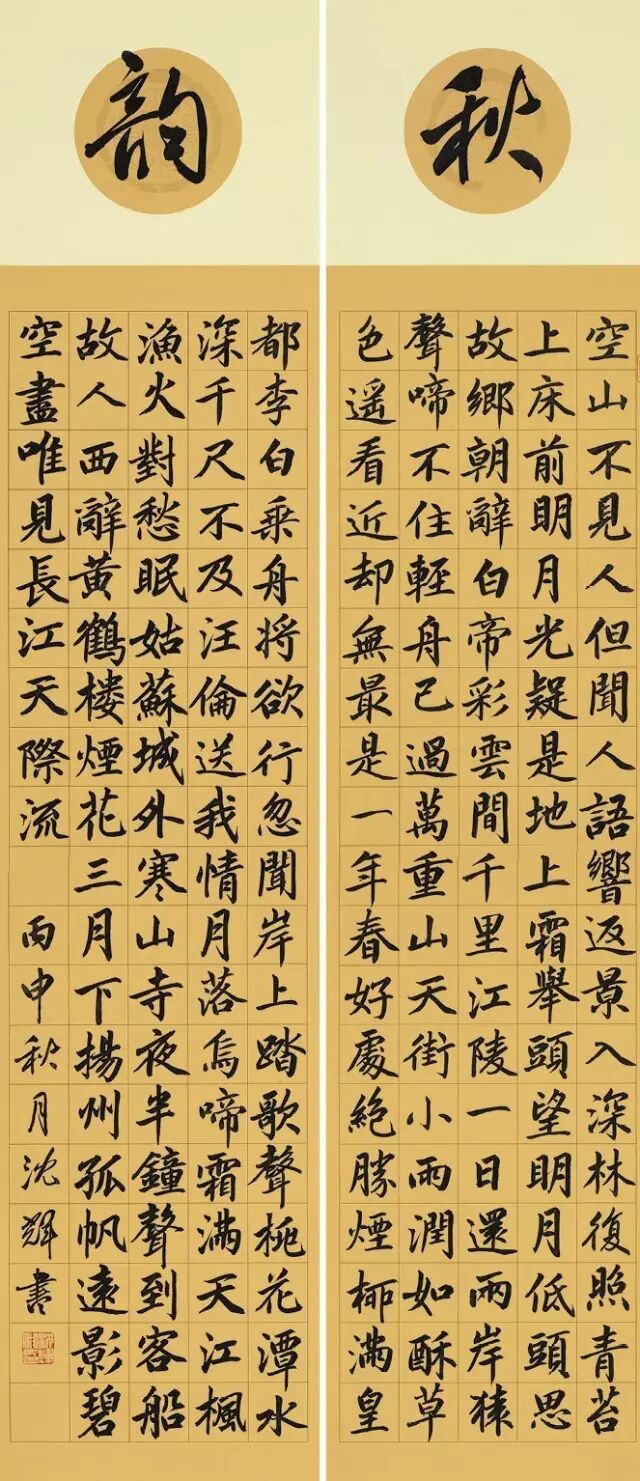 秋
空山不見人但聞人語響返景入深林復照青苔
上床前明月光疑是地上霜舉頭望明月低頭思
故鄉朝辭白帝彩雲間千里江陵一日還兩岸猿
聲啼不住輕舟已過萬重山天街小雨潤如酥草
色遥看近却無最是一年春好處絕勝煙柳滿皇
韵
都李白乘舟將欲行忽聞岸上踏歌聲桃花潭水
深千尺不及汪倫送我情月落烏啼霜滿天江楓
漁火對愁眠姑蘇城外寒山寺夜半鐘聲到客船
故人西辭黄鶴楼煙花三月下揚州孤帆遠影碧
空盡唯見長江天際流
丙申秋月沈輝書